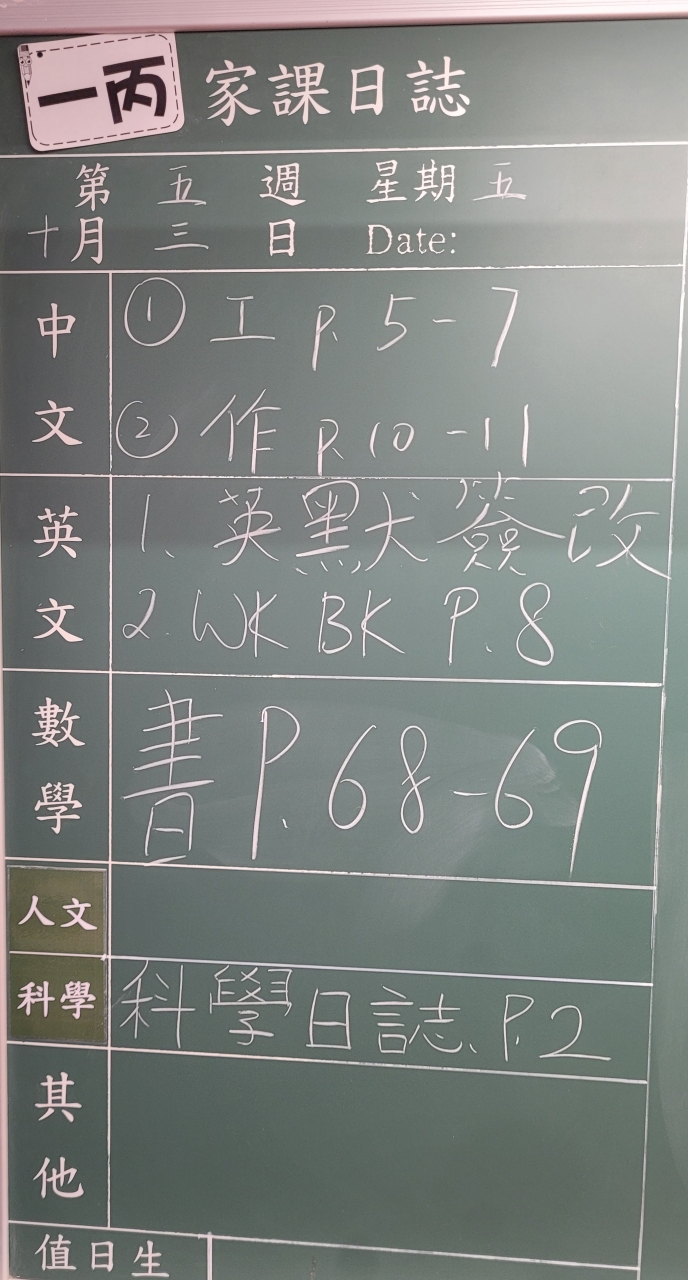 一丙 家課日誌
第 五 週 星期 五
十月 三 日 Date:
中文
① 工 P. 5-7
② 作 P. 10-11
英文
1. 英默簽改
2. WK BK P. 8
數學
書 P. 68-69
人文
科學
科學日誌、P.2
其他
值日生